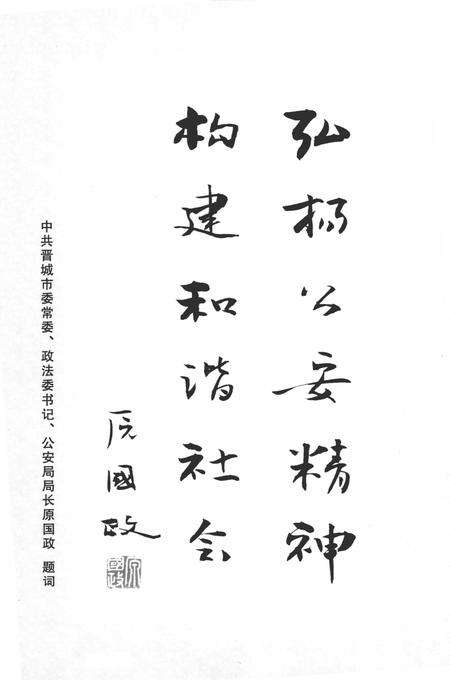 弘扬公安精神
构建和谐社会
原國政
原國政
中共晋城市委常委、政法委书记、公安局局长原国政 题词